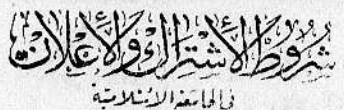 شُرُوطُ الأشتراك والأعلان
في الجامعة الإسلامية